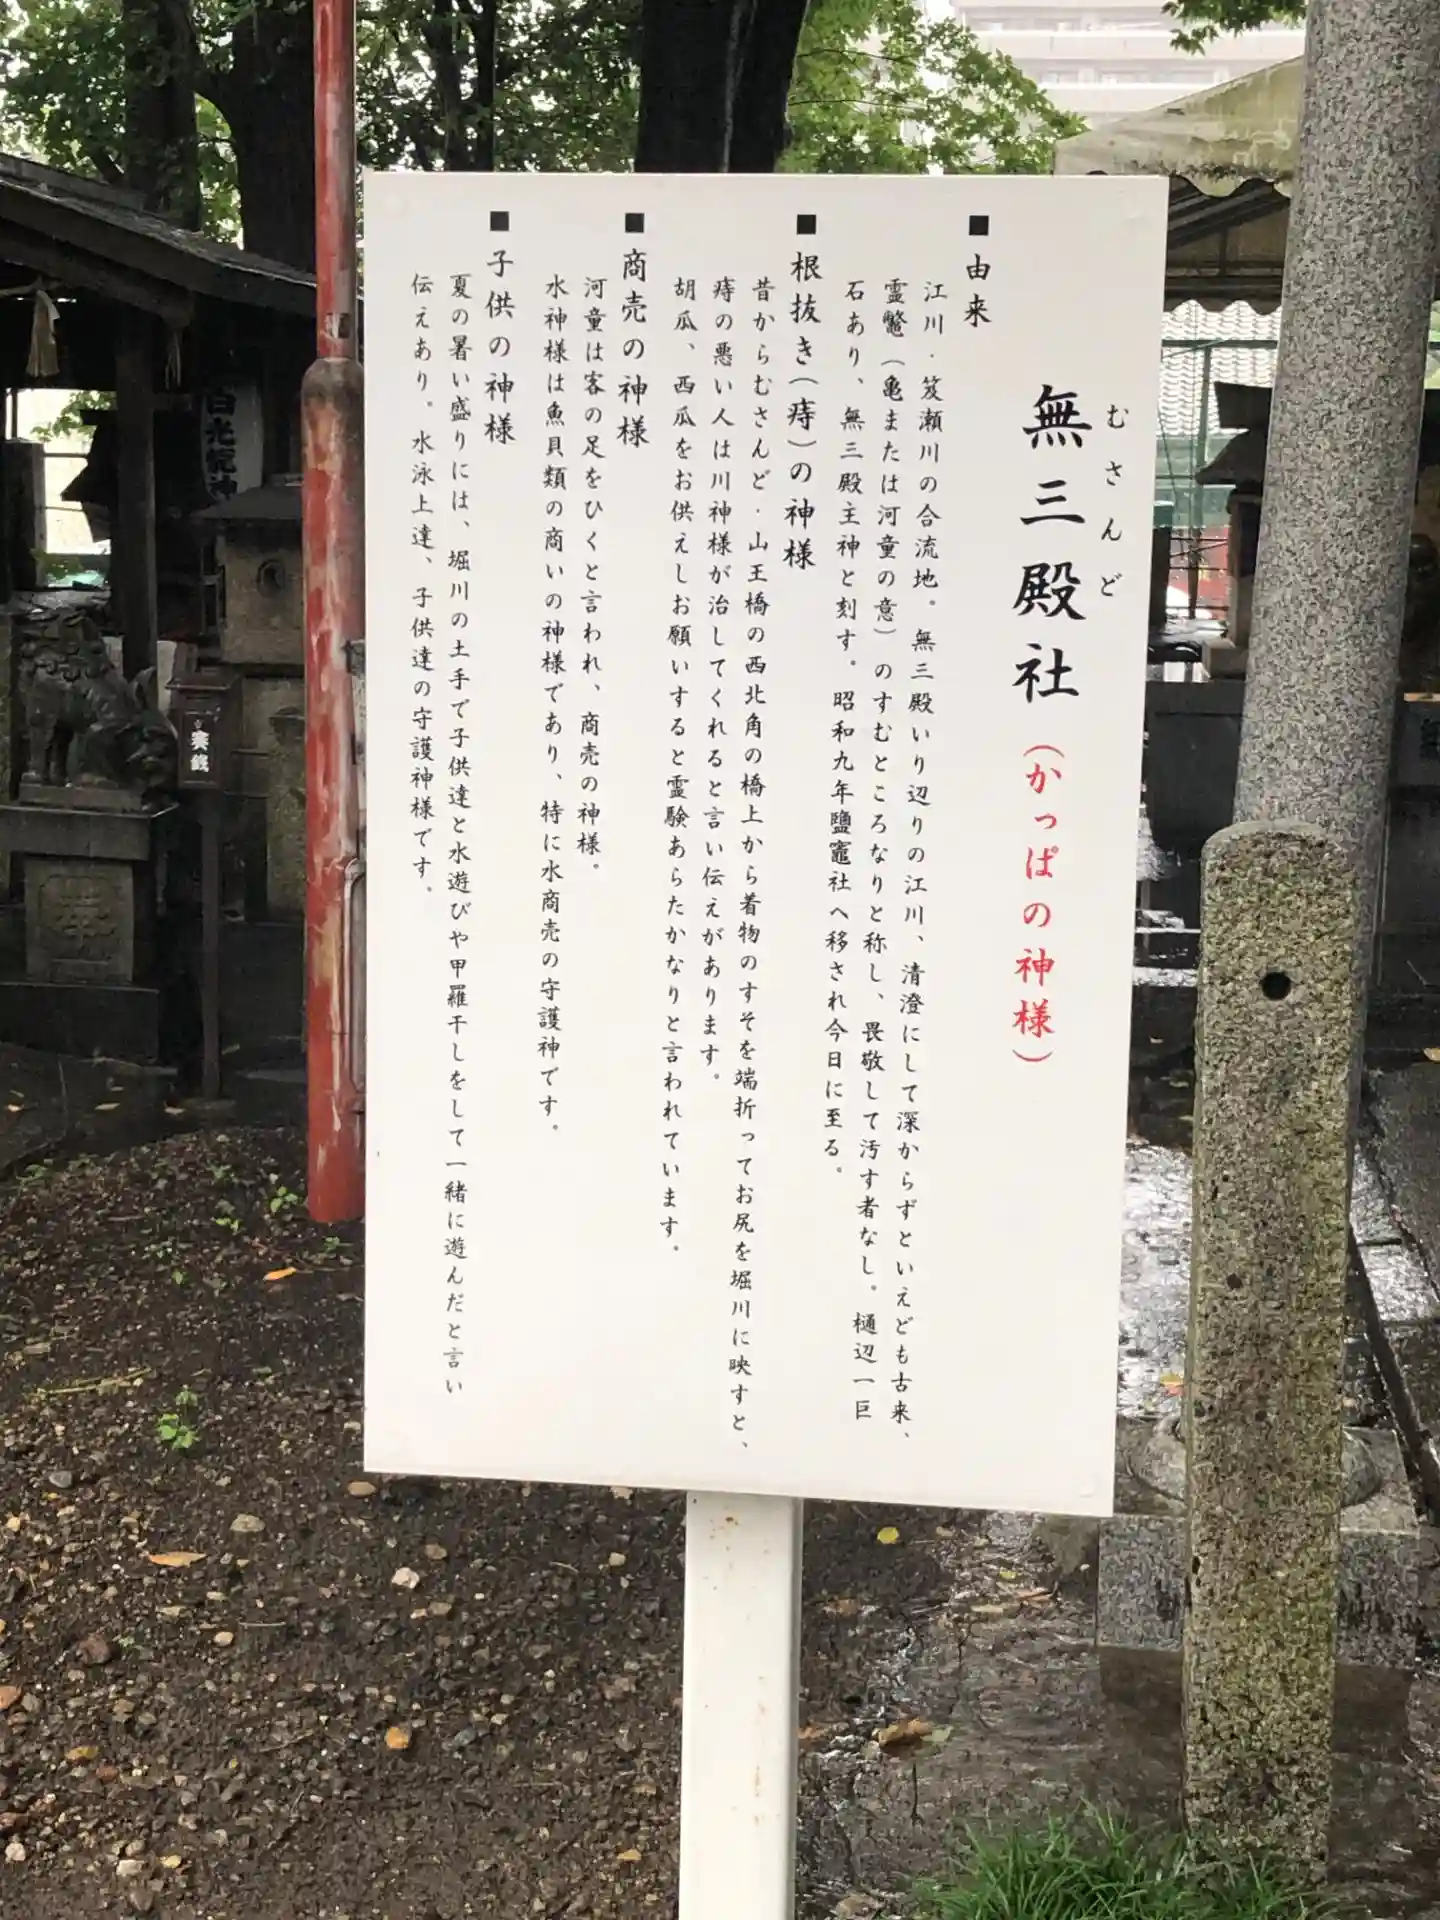 むさんど
無三殿社（かっぱの神様）
■由来
江川・笈瀬川の合流地。無三殿いり辺りの江川、清澄にして深からずといえども古来、
霊鼈（亀または河童の意）のすむところなりと称し、畏敬して汚す者なし。樋辺一巨
石あり、無三殿主神と刻す。昭和九年鹽竈社へ移され今日に至る。
■根抜き（痔）の神様
昔からむさんど・山王橋の西北角の橋上から着物のすそを端折ってお尻を堀川に映すと、
痔の悪い人は川神様が治してくれると言い伝えがあります。
胡瓜、西瓜をお供えしお願いすると霊験あらたかなりと言われています。
■商売の神様
河童は客の足をひくと言われ、商売の神様。
水神様は魚貝類の商いの神様であり、特に水商売の守護神です。
■子供の神様
夏の暑い盛りには、堀川の土手で子供達と水遊びや甲羅干しをして一緒に遊んだと言い
伝えあり。水泳上達、子供達の守護神様です。
白光龍神
賽銭